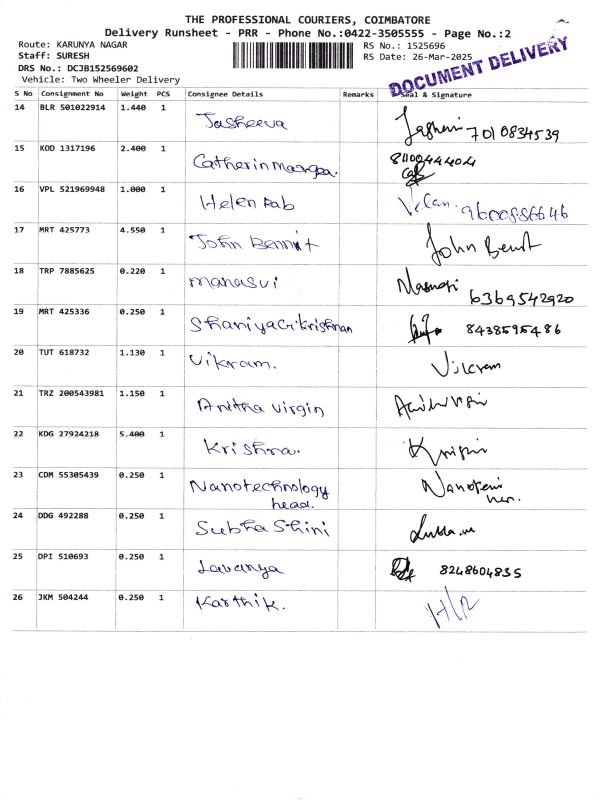 THE PROFESSIONAL COURIERS, COIMBATORE
Delivery Runsheet - PRR - Phone No.:0422-3505555 - Page No.:2
Route: KARUNYA NAGAR
RS No.: 1525696
Staff: SURESH
RS Date: 26-Mar-2025
DRS No.: DCJB152569602
Vehicle: Two Wheeler Delivery
DOCUMENT DELIVERY
S No Consignment No Weight PCS Consignee Details Remarks Seal & Signature
14 BLR 501022914 1.440 1 Jasheeva
15 KOD 1317196 2.400 1 Catherin 8110044404
16 VPL 521969948 1.000 1 Helen Rab 9600886646
17 MRT 425773 4.550 1 John Bennit John
18 TRP 7885625 0.220 1 manasvi 6369542920
19 MRT 425336 0.250 1 8438595486
20 TUT 618732 1.130 1 Vikram. Vikram
21 TRZ 200543981 1.150 1 Anitha virgin
22 KDG 27924218 5.400 1 Krishna.
23 CDM 55305439 0.250 1 Nanotechnology
head.
24 DDG 492288 0.250 1 Subha Shini
25 DPI 510693 0.250 1 Lavanya 8248604835
26 JKM 504244 0.250 1 Karthik.